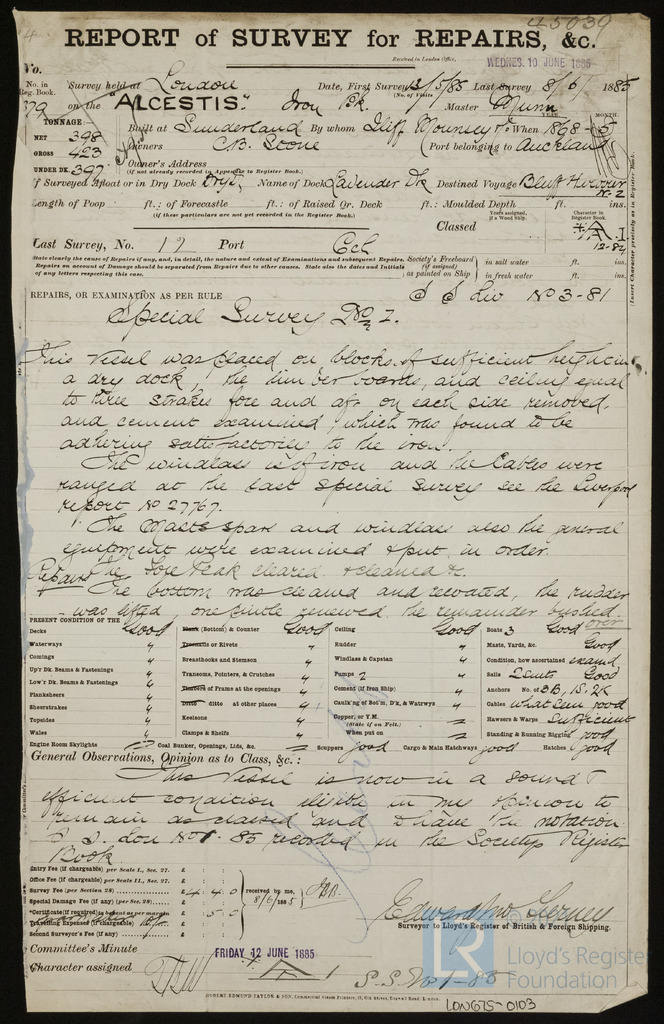 45039
REPORT of SURVEY for REPAIRS, &c.
Received in London Office,
WEDNES. 10 JUNE 1885
No.
No. in Reg. Book.
Survey held at London Date, First Survey 13/5/85 Last Survey 8/6/ 1885
(No. of Visits
379 on the "ALCESTIS." Iron Bk. Master Munn
TONNAGE
YEAR. MONTH.
NET 398 Built at Sunderland By whom Iliff Mounsey & Co When 1868-5
GROSS 423 Owners C.B. Stone Port belonging to Auckland
UNDER DK. 397 Owner's Address
(if not already recorded in Appendix to Register Book.)
If Surveyed Afloat or in Dry Dock Dry Name of Dock Lavender Dk Destined Voyage Bluff Harbour N.Z
Length of Poop ft.: of Forecastle ft.: of Raised Qr. Deck ft.: Moulded Depth ft. ins.
(if these particulars are not yet recorded in the Register Book.)
Years assigned, if a Wood Ship.
Character in Register Book.
Classed A.1
12-84
(Insert Character precisely as in Register Book.)
Last Survey, No. 17 Port
State clearly the cause of Repairs if any, and, in detail, the nature and extent of Examinations and subsequent Repairs.
Repairs on account of Damage should be separated from Repairs due to other causes. State also the dates and Initials of any letters respecting this case.
Society's Freeboard (if assigned) as painted on Ship
in salt water ft. ins.
in fresh water ft. ins.
REPAIRS, OR EXAMINATION AS PER RULE S S Liv No 3-81
Special Survey No 1.
This vessel was placed on blocks of sufficient height in
a dry dock, the limber boards, and ceiling equal
to three strakes fore and aft on each side removed,
and cement examined, which was found to be
adhering satisfactorily to the iron.
The windlass is of iron and the Cables were
ranged at the last special Survey see the Liverpool
report No 27767.
The Masts spars and windlass also the general
equipment were examined & put in order.
Repairs The Fore Peak cleared & cleaned &c.
The bottom was cleaned and recoated, the rudder
was lifted, one pintle renewed the remainder bushed
over
PRESENT CONDITION OF THE
Decks Good
Waterways "
Comings "
Up'r Dk. Beams & Fastenings "
Low'r Dk. Beams & Fastenings "
Planksheers "
Sheerstrakes "
Topsides "
Wales "
Engine Room Skylights
Plank (Bottom) & Counter Good
Treenails or Rivets "
Breasthooks and Stemson "
Transoms, Pointers, & Crutches "
Timbers of Frame at the openings "
Ditto ditto at other places "
Keelsons "
Clamps & Shelfs "
Coal Bunker, Openings, Lids, &c.
Ceiling Good
Rudder "
Windlass & Capstan "
Pumps 2 "
Cement (if Iron Ship) "
Caulk'ng of Bot'm, D'k, & Watrwys "
Copper, or Y.M.
(State if on Felt.)
When put on
Scuppers good
Cargo & Main Hatchways good
Boats 3 Good
Masts, Yards, &c. Good
Condition, how ascertained examd
Sails 2 suits Good
Anchors No. of 3B, 1S, 2K
Cables what seen good
Hawsers & Warps Sufficient
Standing & Running Rigging good
Hatches good
General Observations, Opinion as to Class, &c.:
This vessel is now in a sound &
efficient condition eligible in my opinion to
remain as classed and to have the notation
S.S. Lon No 1. 85 recorded in the Societys Register
Book
Entry Fee (if chargeable) per Scale I., Sec. 27. £ : :
Office Fee (if chargeable) per Scale II., Sec. 27. £ : :
Survey Fee (per Section 28) £ 4 : 4 : 0
Special Damage Fee (if any) (per Sec. 28) £ : :
*Certificate (if required) to be sent as per margin : 5 : 0
Travelling Expenses (if chargeable) £ : :
Second Surveyor's Fee (if any) £ : :
received by me,
8/6/1885
Surveyor to Lloyd's Register of British & Foreign Shipping.
Committee's Minute FRIDAY 12 JUNE 1885
Character assigned A 1
S.S. No 1-85
HUBERT EDMUND TAYLOR & SON, Commercial Steam Printers,
Lloyd's Register Foundation
LR
LON675-0103